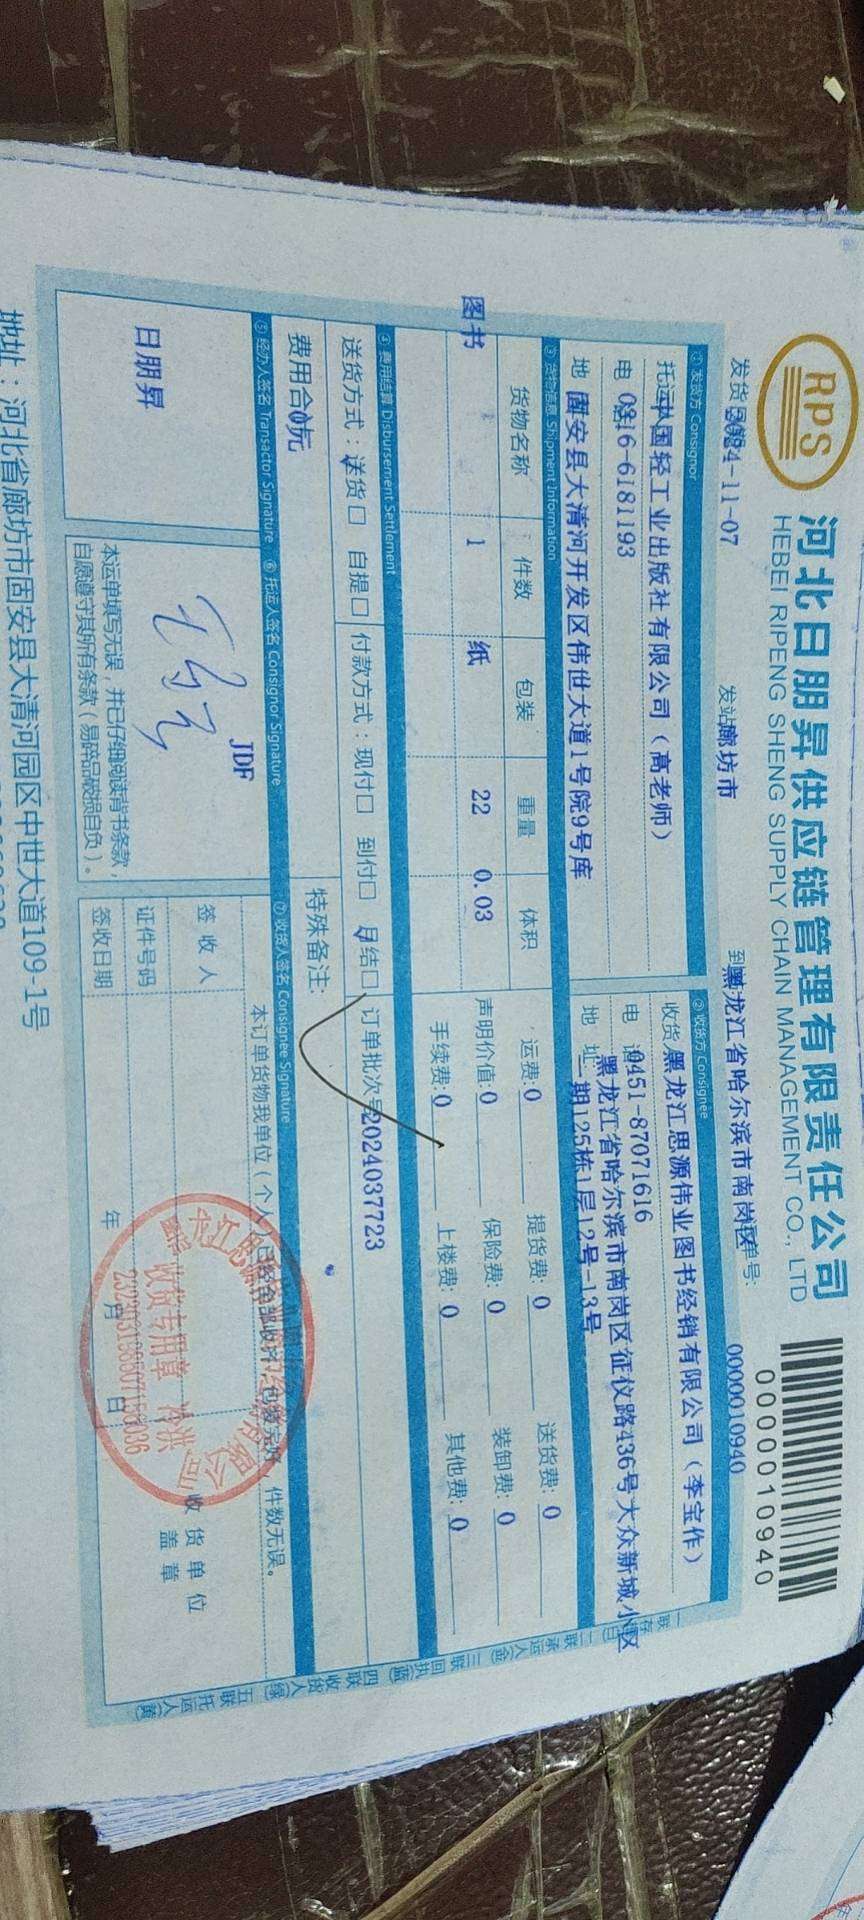 RPS
河北日朋昇供应链管理有限责任公司
HEBEI RIPENG SHENG SUPPLY CHAIN MANAGEMENT CO., LTD
0000010940
发货日期 2024-11-07
发站 廊坊市
到站 黑龙江省哈尔滨市南岗区
单号: 0000010940
① 发货方 Consignor
托运人 中国轻工业出版社有限公司（高老师）
电话 0316-6181193
地址 固安县大清河开发区伟世大道1号院9号库
② 收货方 Consignee
收货人 黑龙江思源伟业图书经销有限公司（李宝作）
电话 0451-87071616
地址 黑龙江省哈尔滨市南岗区征仪路436号大众新城小区
二期125栋1层12号-13号
③ 货物信息 Shipment Information
货物名称 件数 包装 重量 体积
图书 1 纸 22 0.03
运费:0 提货费: 0 送货费: 0
声明价值:0 保险费: 0 装卸费: 0
手续费:0 上楼费: 0 其他费: 0
④ 费用结算 Disbursement Settlement
送货方式：送货☑ 自提□ 付款方式：现付□ 到付□ 月结☑ 订单批次号2024037723
费用合计 0元
特殊备注:
⑤ 经办人签名 Transactor Signature
日朋昇
⑥ 托运人签名 Consignor Signature
JDF
本运单填写无误，并已仔细阅读背书条款
自愿遵守其所有条款（易碎品破损自负）。
⑦ 收货人签名 Consignee Signature
本订单货物我单位（个人）已经全部收讫，包装完好，件数无误。
签收人
证件号码
签收日期 年 月 日
收货单位
盖章
收货专用章
一联存
二联承运人
三联回执
四联收货人
五联托运人
地址：河北省廊坊市固安县大清河园区中世大道109-1号